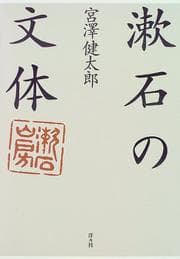 漱石の
文体
宮澤健太郎
漱石
山房
洋々社